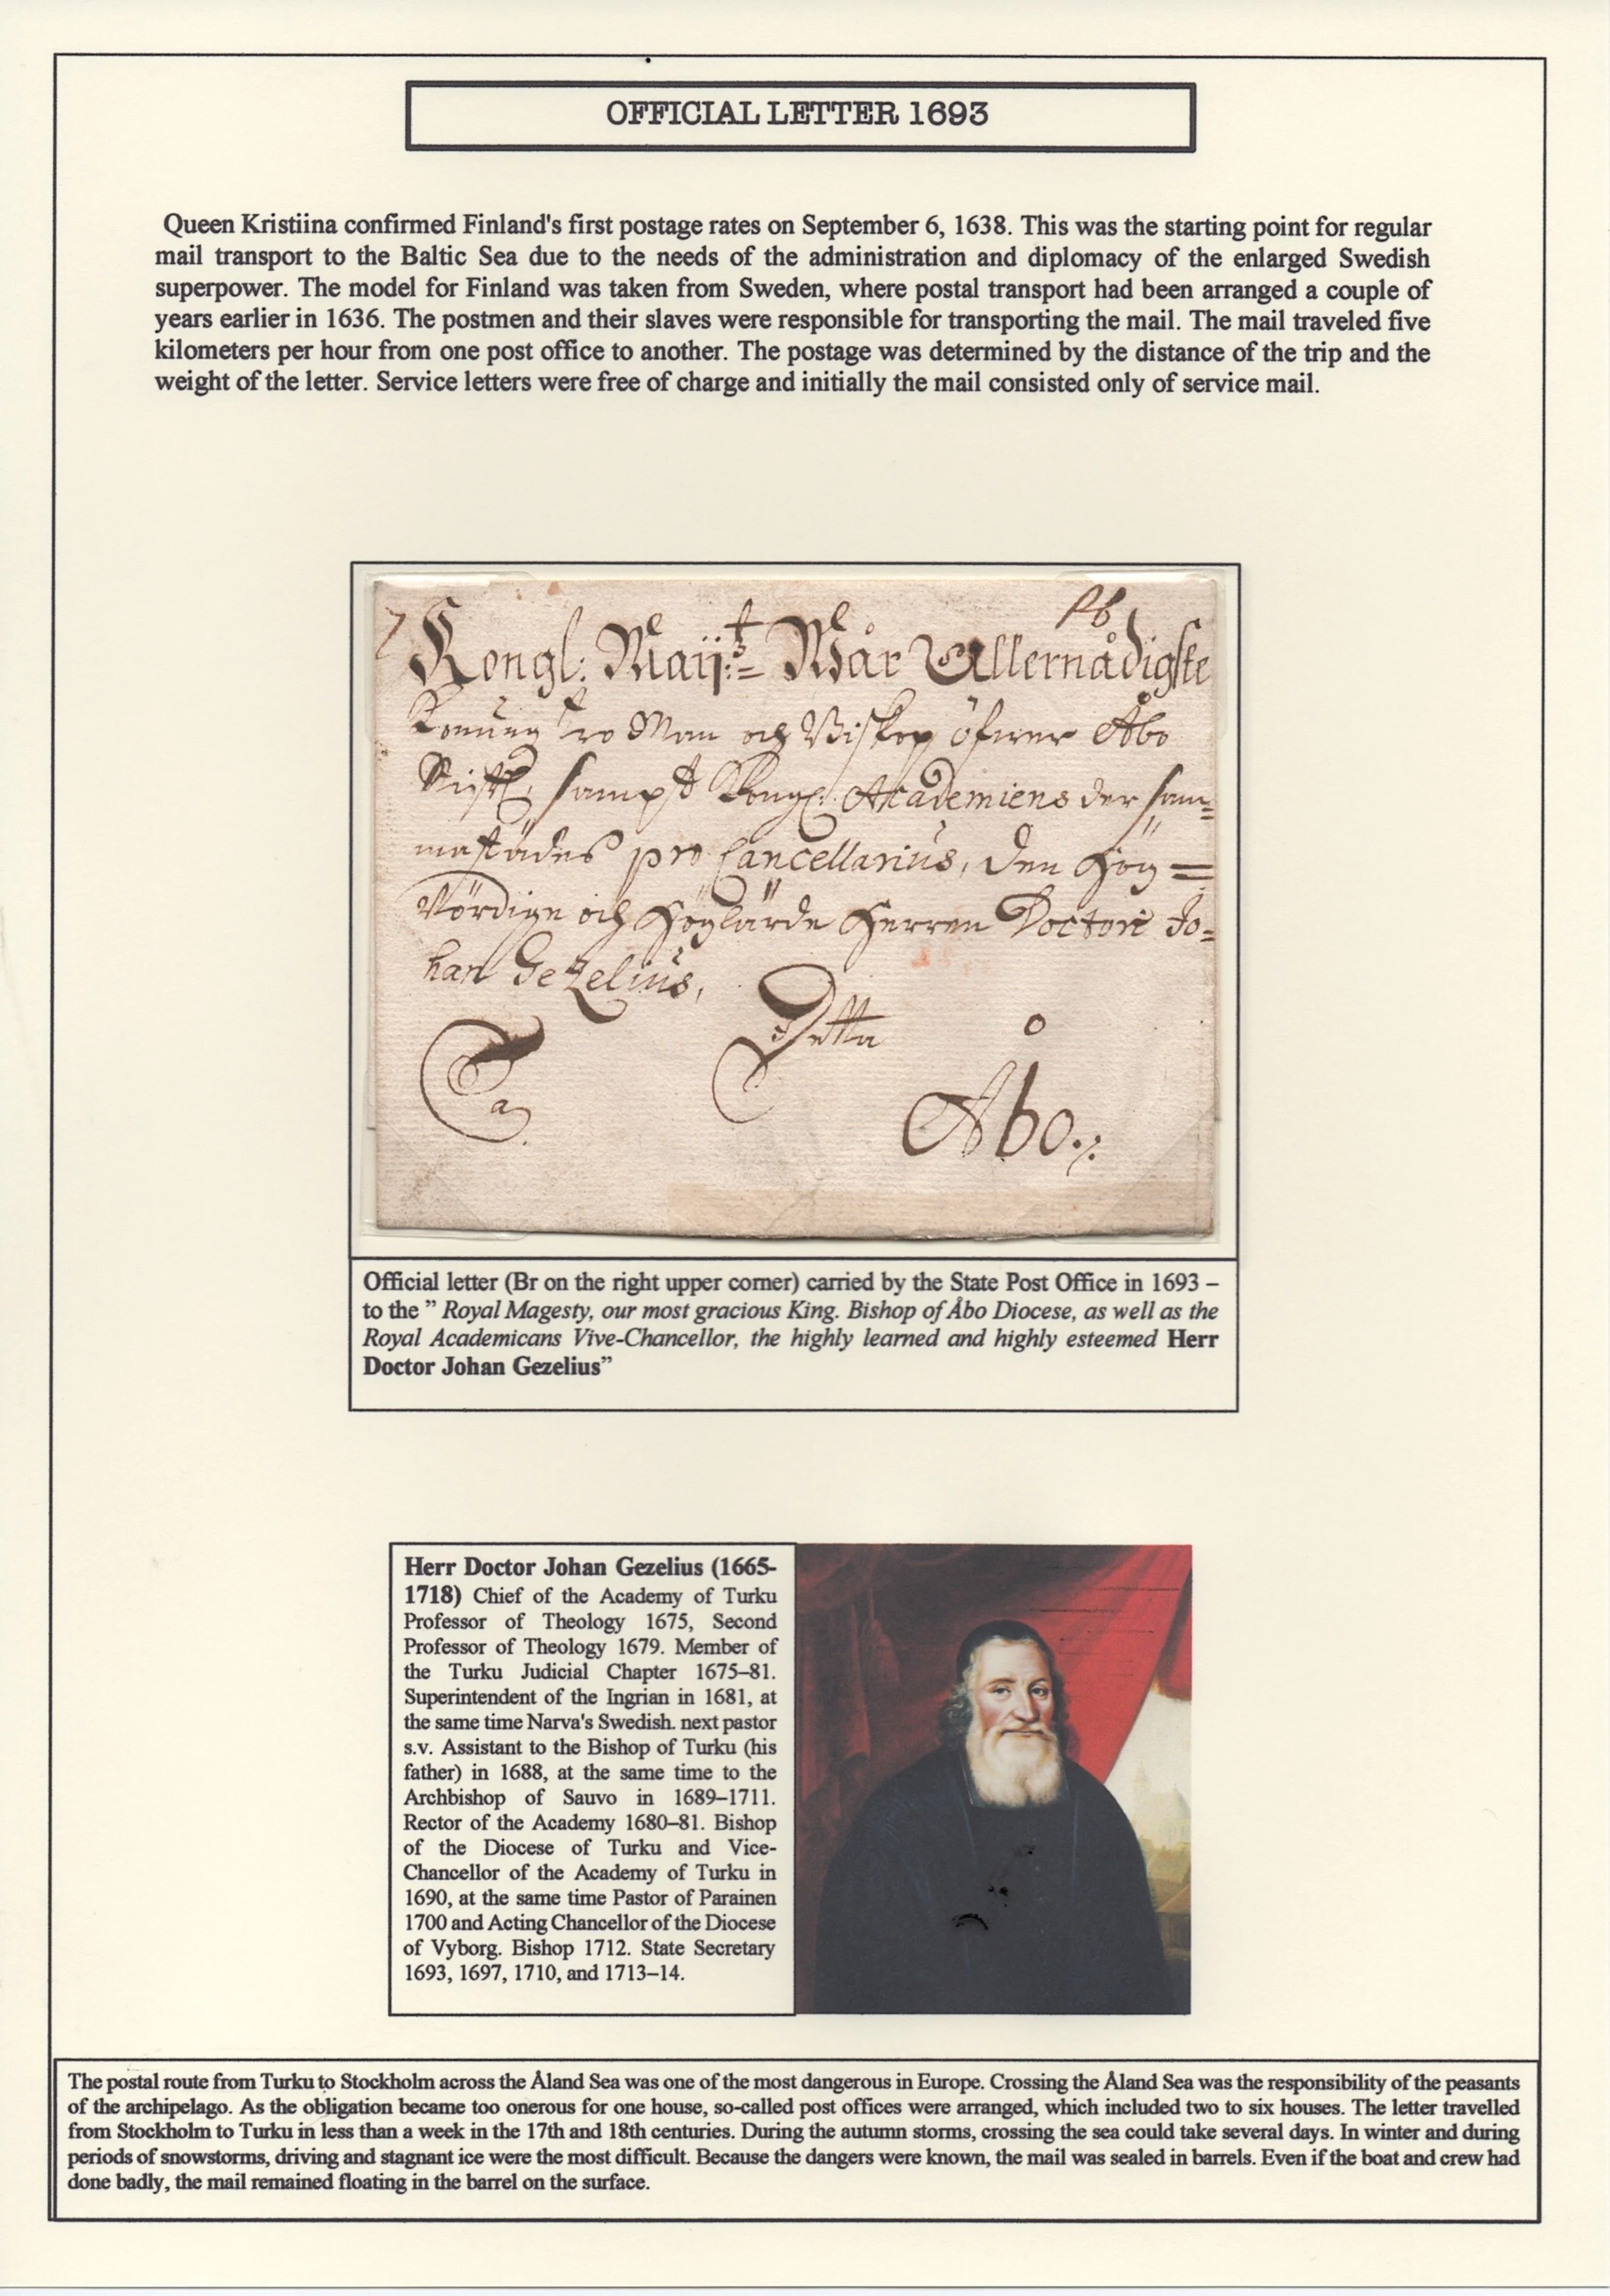 OFFICIAL LETTER 1693
Queen Kristiina confirmed Finland's first postage rates on September 6, 1638. This was the starting point for regular
mail transport to the Baltic Sea due to the needs of the administration and diplomacy of the enlarged Swedish
superpower. The model for Finland was taken from Sweden, where postal transport had been arranged a couple of
years earlier in 1636. The postmen and their slaves were responsible for transporting the mail. The mail traveled five
kilometers per hour from one post office to another. The postage was determined by the distance of the trip and the
weight of the letter. Service letters were free of charge and initially the mail consisted only of service mail.
Kongl: Maij:tz Wår Allernådigste
Konung tro Man och Biskop öfwer Åbo
Sticht, sampt Kongl: Academiens der sam=
mastädes pro Cancellarius, Den Hög=
Vördige och Höglärde Herren Doctore Jo=
han Gezelius,
Detta
a
Åbo.
Official letter (Br on the right upper corner) carried by the State Post Office in 1693 –
to the ” Royal Magesty, our most gracious King. Bishop of Åbo Diocese, as well as the
Royal Academicans Vive-Chancellor, the highly learned and highly esteemed Herr
Doctor Johan Gezelius”
Herr Doctor Johan Gezelius (1665-
1718) Chief of the Academy of Turku
Professor of Theology 1675, Second
Professor of Theology 1679. Member of
the Turku Judicial Chapter 1675–81.
Superintendent of the Ingrian in 1681, at
the same time Narva's Swedish. next pastor
s.v. Assistant to the Bishop of Turku (his
father) in 1688, at the same time to the
Archbishop of Sauvo in 1689–1711.
Rector of the Academy 1680–81. Bishop
of the Diocese of Turku and Vice-
Chancellor of the Academy of Turku in
1690, at the same time Pastor of Parainen
1700 and Acting Chancellor of the Diocese
of Vyborg. Bishop 1712. State Secretary
1693, 1697, 1710, and 1713–14.
The postal route from Turku to Stockholm across the Åland Sea was one of the most dangerous in Europe. Crossing the Åland Sea was the responsibility of the peasants
of the archipelago. As the obligation became too onerous for one house, so-called post offices were arranged, which included two to six houses. The letter travelled
from Stockholm to Turku in less than a week in the 17th and 18th centuries. During the autumn storms, crossing the sea could take several days. In winter and during
periods of snowstorms, driving and stagnant ice were the most difficult. Because the dangers were known, the mail was sealed in barrels. Even if the boat and crew had
done badly, the mail remained floating in the barrel on the surface.